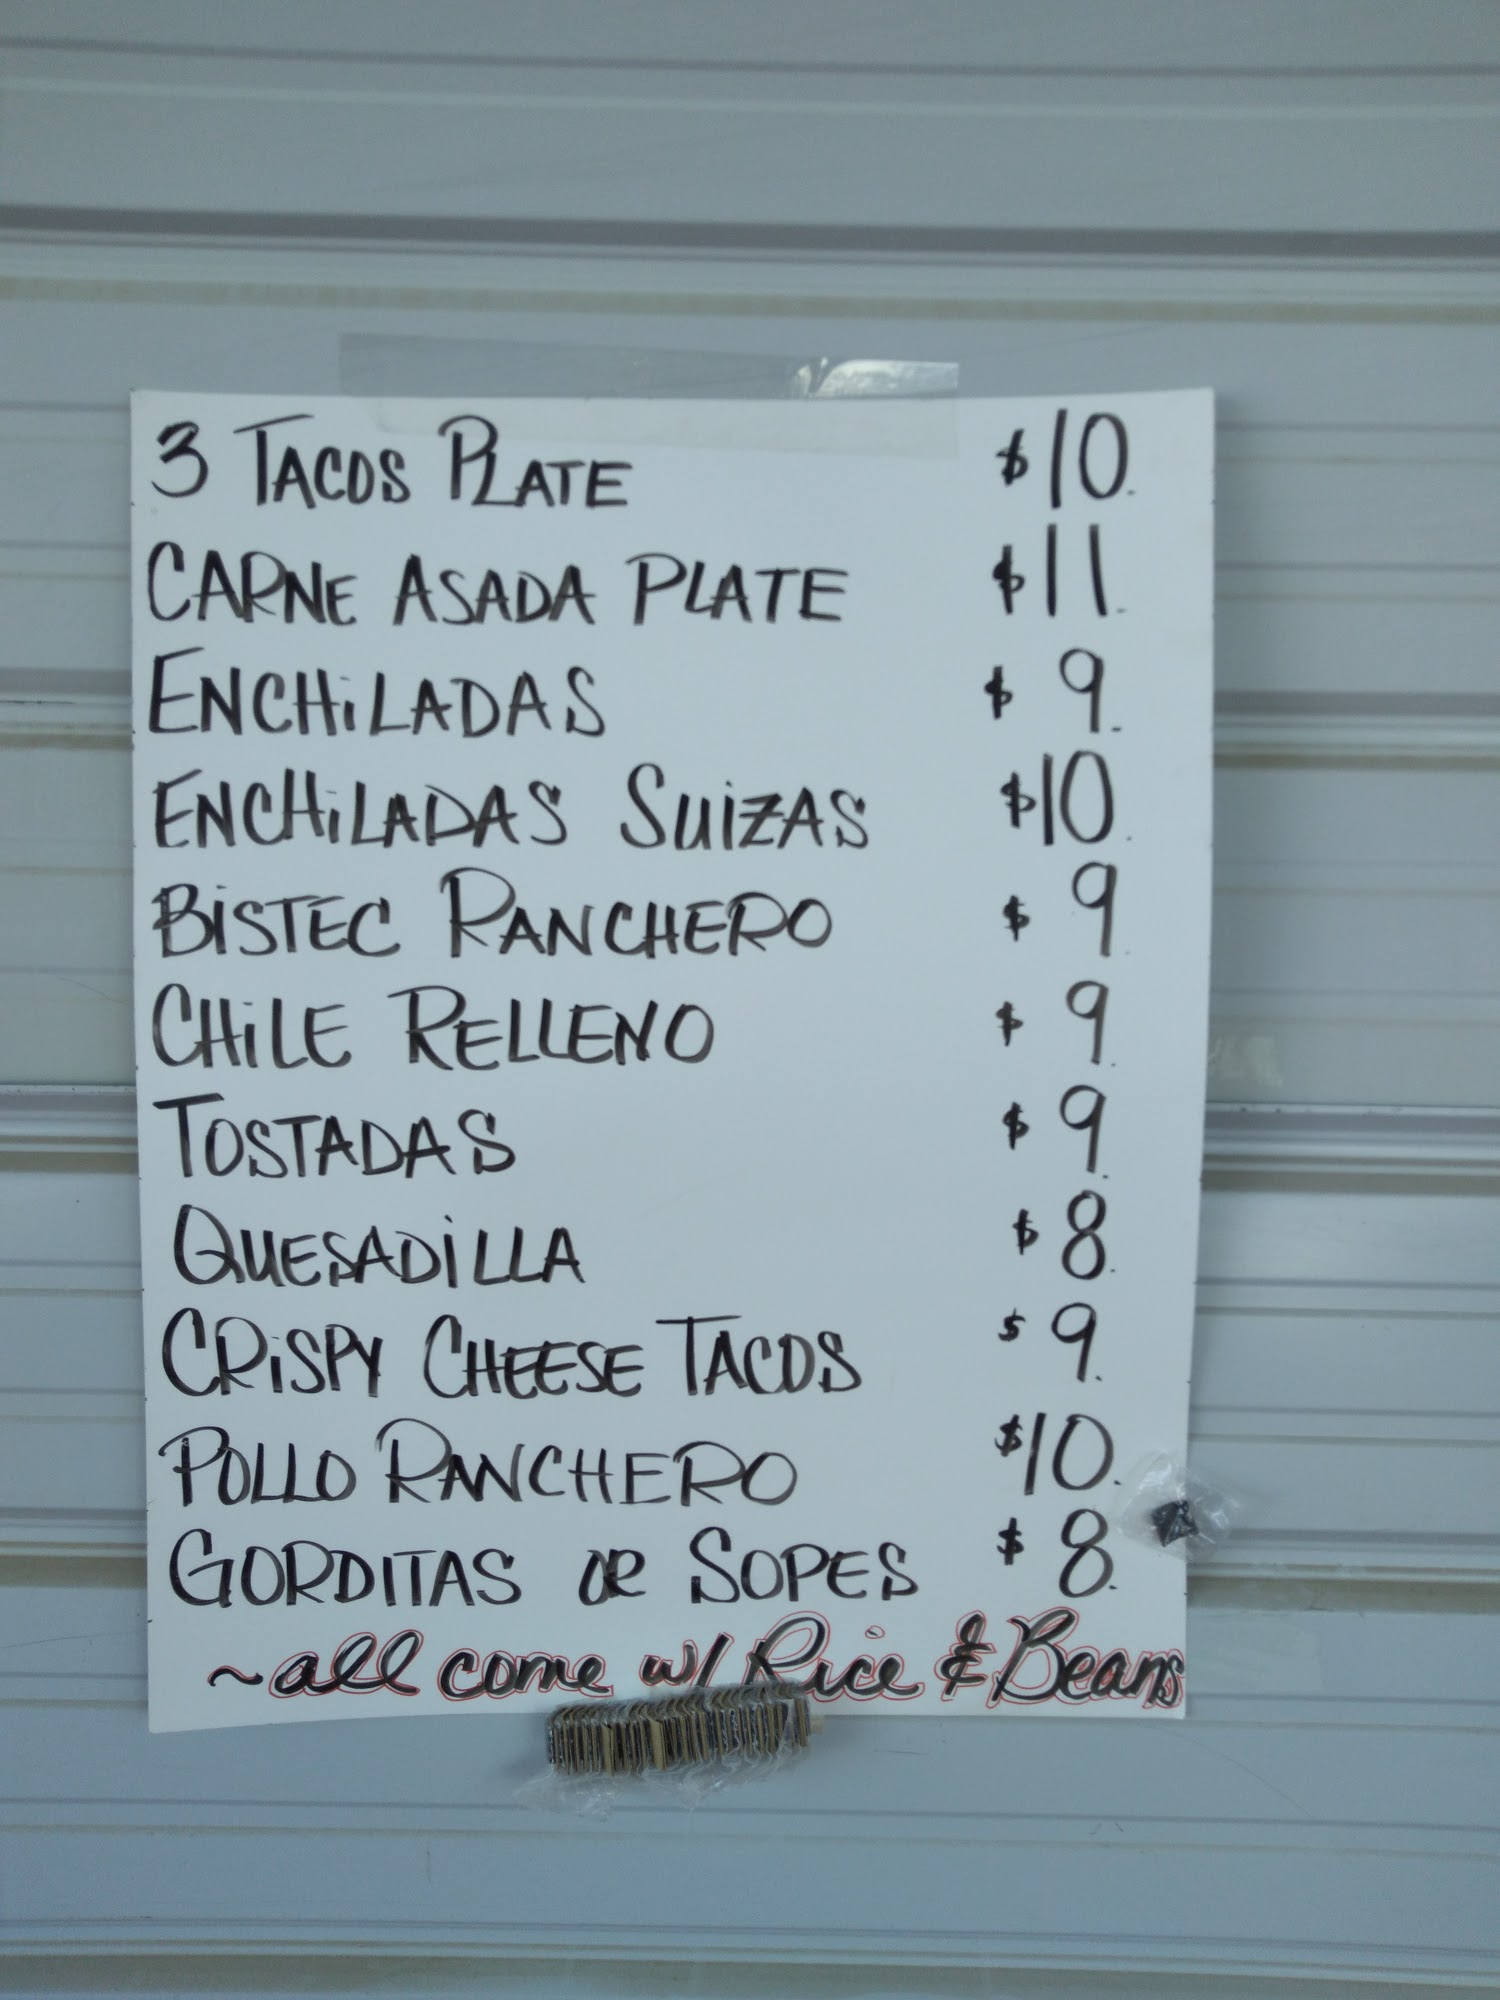 3 TACOS PLATE $10.
CARNE ASADA PLATE $11.
ENCHiLADAS $9.
ENCHiLADAS SUiZAS $10.
BiSTEC RANCHERO $9.
CHiLE RELLENO $9.
TOSTADAS $9.
QUESADiLLA $8.
CRiSPY CHEESE TACOS $9.
POLLO RANCHERO $10.
GORDITAS OR SOPES $8.
~all come w/ Rice & Beans